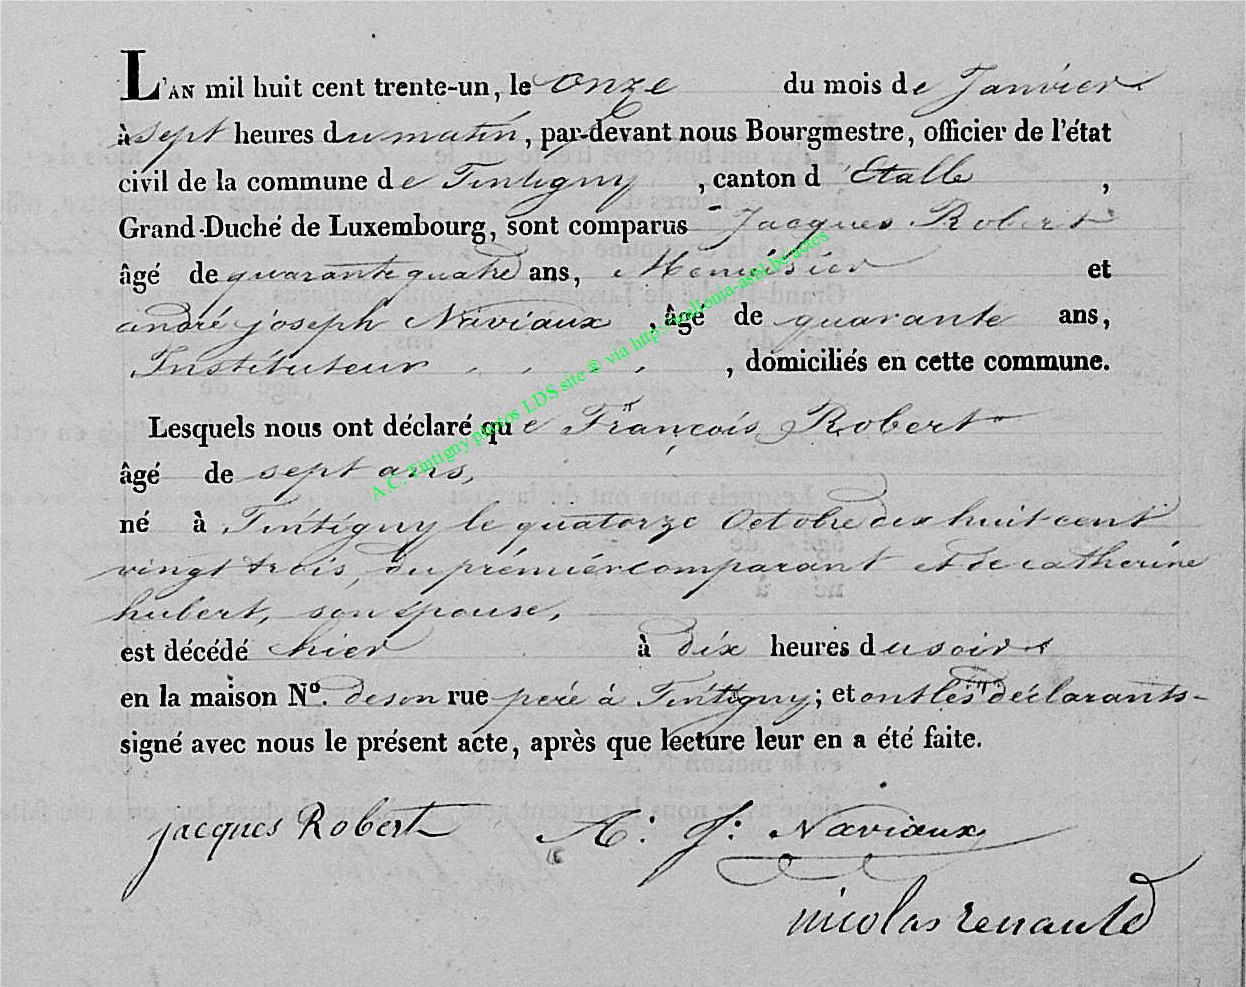 L'AN mil huit cent trente-un, le onze du mois de Janvier
à sept heures du matin, par-devant nous Bourgmestre, officier de l'état
civil de la commune de Tintigny, canton d'Etalle,
Grand-Duché de Luxembourg, sont comparus Jacques Robert
âgé de quarante quatre ans, Menuisier et
andré joseph Naviaux, âgé de quarante ans,
Instituteur, domiciliés en cette commune.
Lesquels nous ont déclaré que François Robert
âgé de sept ans,
né à Tintigny le quatorze Octobre dix huit cent
vingt trois, du prémiér comparant et de catherine
hubert, son épouse,
est décédé hier à dix heures du soir
en la maison N°. de son rue peré à Tintigny; et ont les déclarants
signé avec nous le présent acte, après que lecture leur en a été faite.
jacques Robert A: J: Naviaux
nicolas renauld
A.C. Tintigny photos LDS site ® via http://wallonia-asbl.be/actes